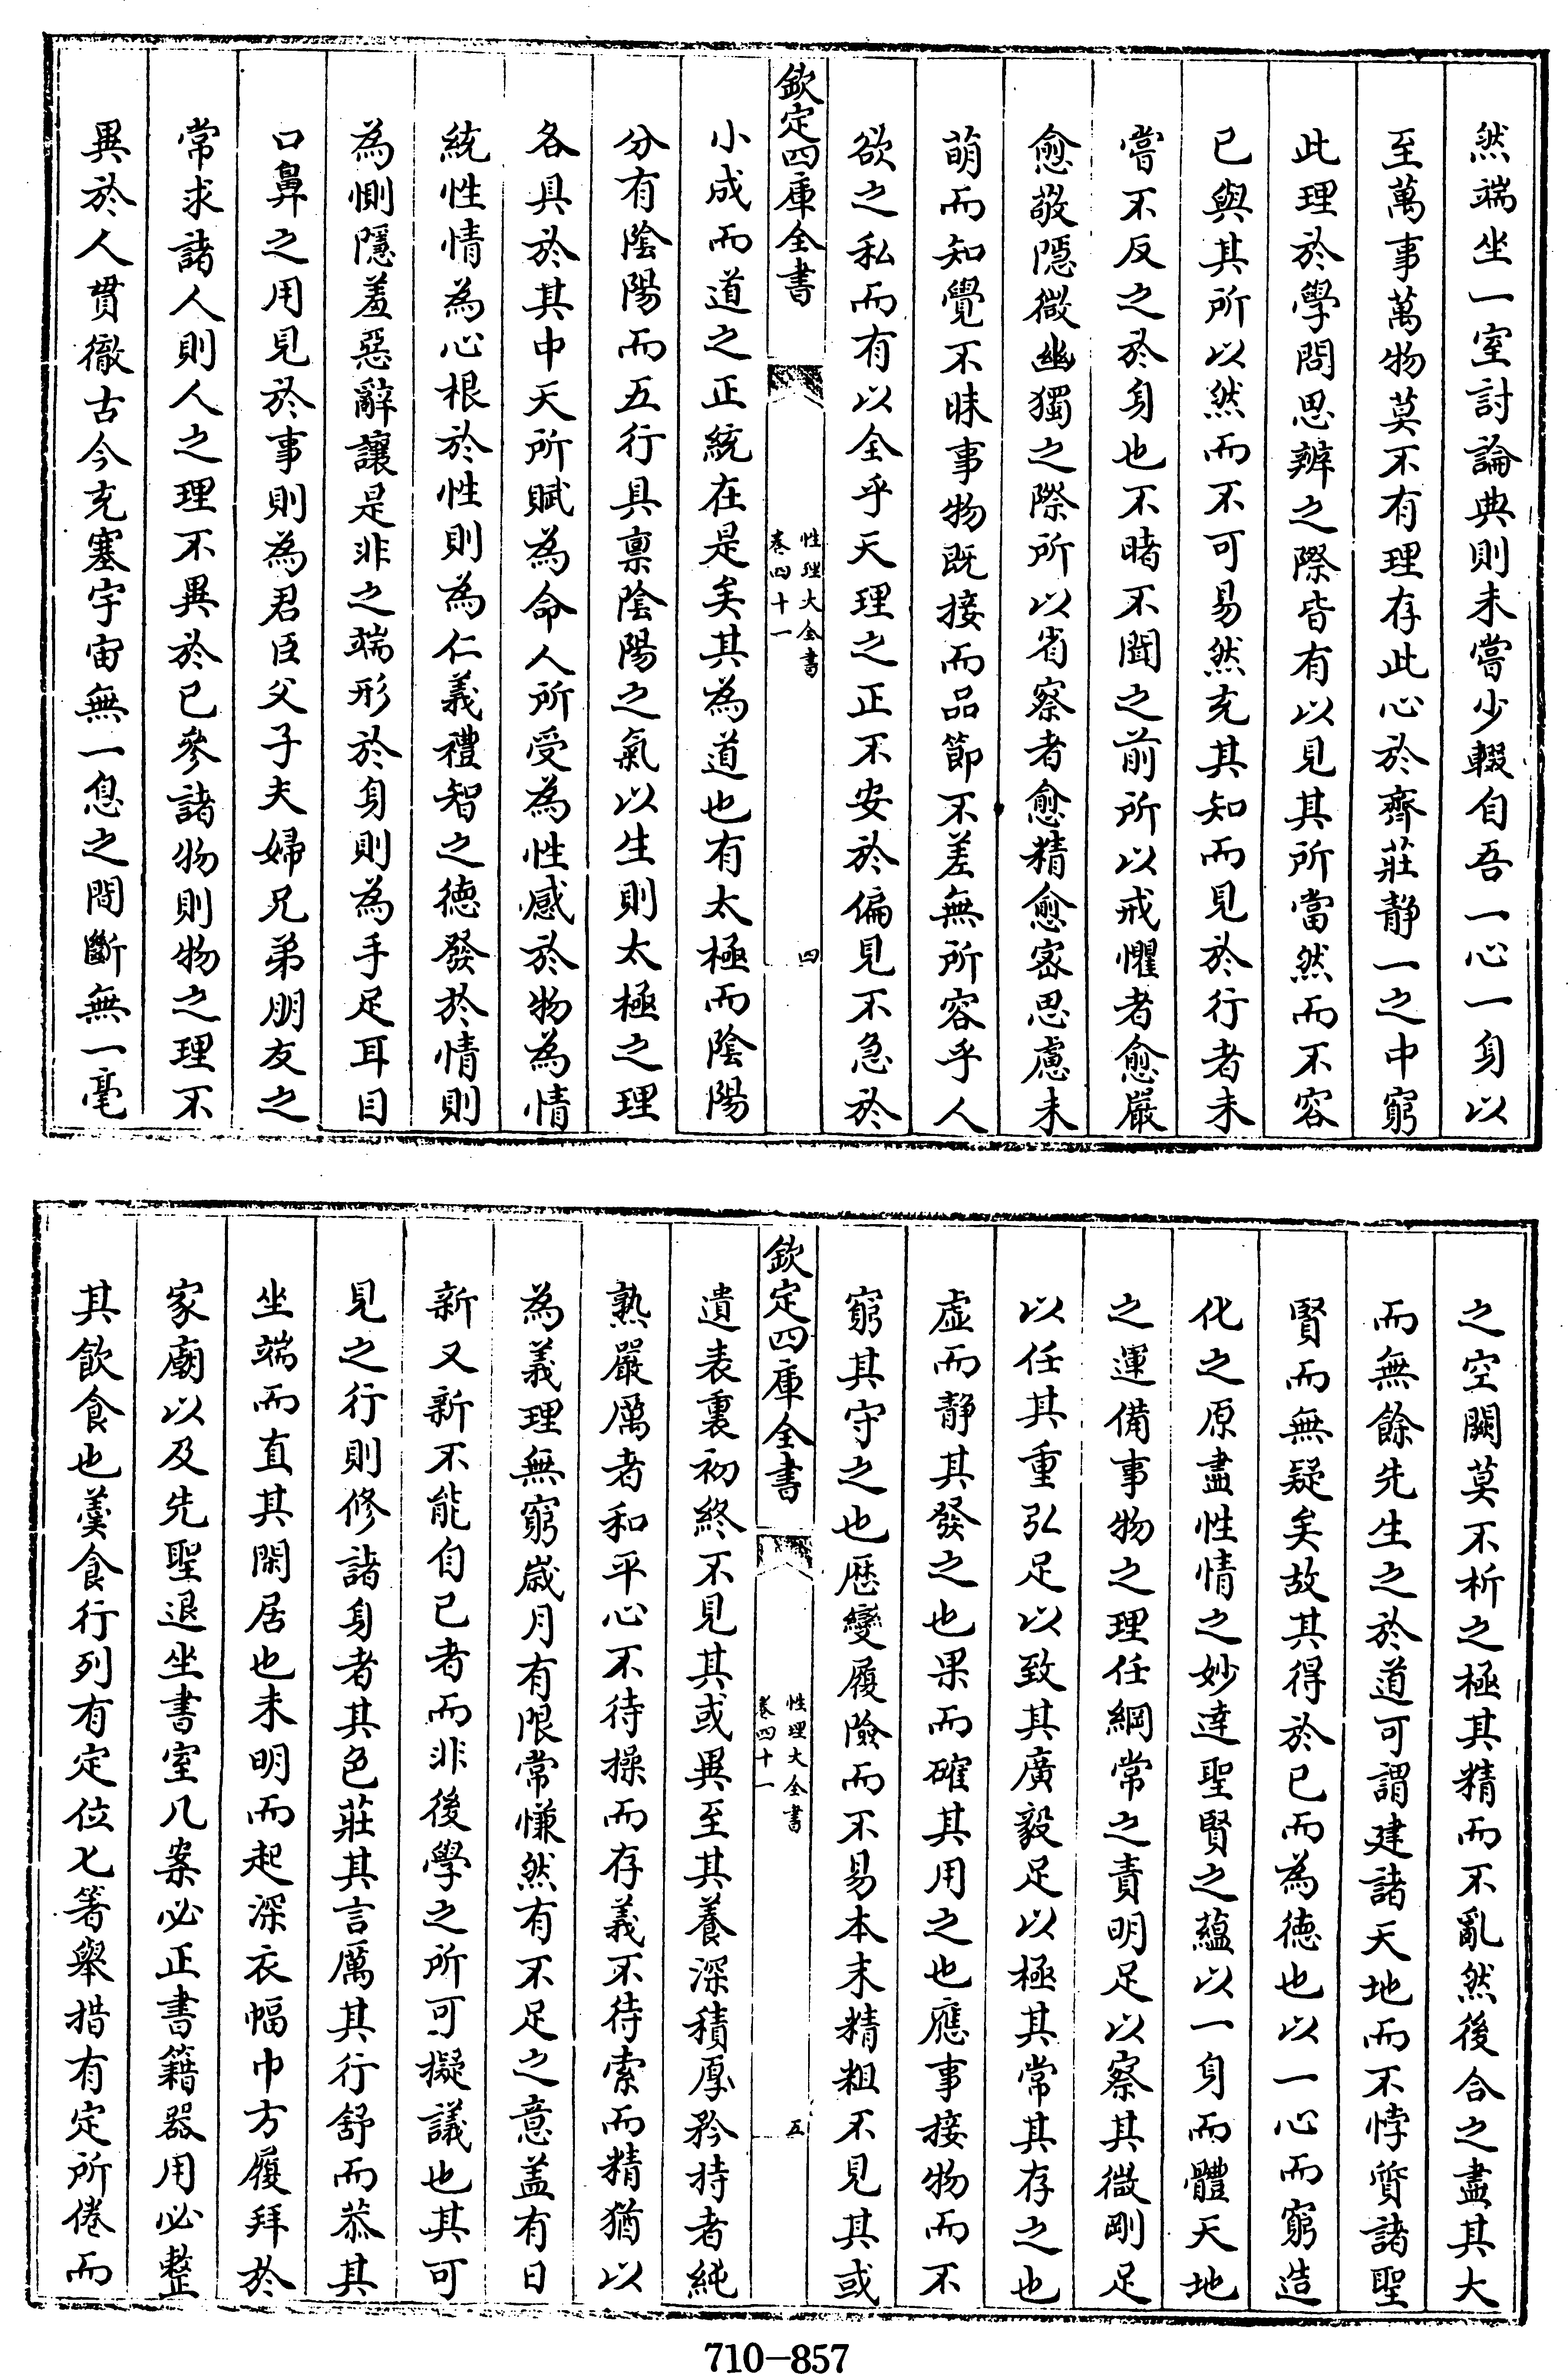 然端坐一室討論典則未嘗少輟自吾一心一身以
至萬事萬物莫不有理存此心於齊莊静一之中窮
此理於學問思辨之際皆有以見其所當然而不容
已與其所以然而不可易然充其知而見於行者未
嘗不反之於身也不睹不聞之前所以戒懼者愈嚴
愈敬隱微幽獨之際所以省察者愈精愈宻思慮未
萌而知覺不昧事物既接而品節不差無所容乎人
欲之私而有以全乎天理之正不安於偏見不急於
欽定四庫全書
性理大全書
卷四十一
四
小成而道之正統在是矣其為道也有太極而陰陽
分有陰陽而五行具禀陰陽之氣以生則太極之理
各具於其中天所賦為命人所受為性感於物為情
統性情為心根於性則為仁義禮智之德發於情則
為惻隱羞惡辭讓是非之端形於身則為手足耳目
口鼻之用見於事則為君臣父子夫婦兄弟朋友之
常求諸人則人之理不異於已參諸物則物之理不
異於人貫徹古今充塞宇宙無一息之間斷無一毫
之空闕莫不析之極其精而不亂然後合之盡其大
而無餘先生之於道可謂建諸天地而不悖質諸聖
賢而無疑矣故其得於已而為德也以一心而窮造
化之原盡性情之妙達聖賢之藴以一身而體天地
之運備事物之理任綱常之責明足以察其微剛足
以任其重弘足以致其廣毅足以極其常其存之也
虛而静其發之也果而確其用之也應事接物而不
窮其守之也歴變履險而不易本末精粗不見其或
欽定四庫全書
性理大全書
卷四十一
五
遺表裏初終不見其或異至其養深積厚矜持者純
熟嚴厲者和平心不待操而存義不待索而精猶以
為義理無窮歲月有限常慊然有不足之意蓋有日
新又新不能自已者而非後學之所可擬議也其可
見之行則修諸身者其色莊其言厲其行舒而恭其
坐端而直其閑居也未明而起深衣幅巾方履拜於
家廟以及先聖退坐書室几案必正書籍器用必整
其飲食也羮食行列有定位匕箸舉措有定所倦而
710-857